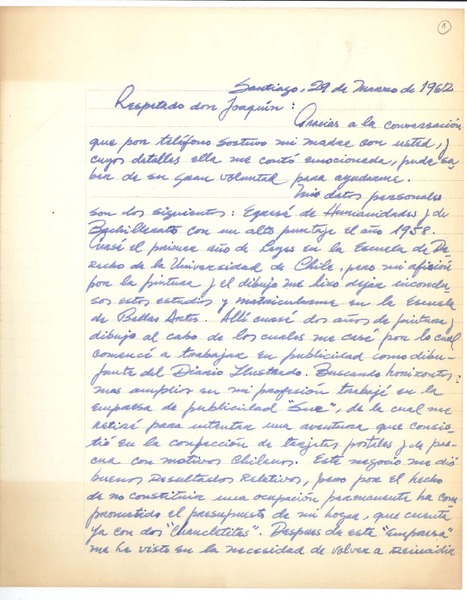 1
Santiago, 29 de Marzo de 1962
Respetado don Joaquín:
Gracias a la conversación
que por teléfono sostuvo mi madre con usted, y
cuyos detalles ella me contó emocionada, pude sa-
ber de su gran voluntad para ayudarme.
Mis datos personales
son dos siguientes: Egresé de Humanidades y de
Bachillerato con un alto puntaje el año 1958.
Cursé el primer año de Leyes en la Escuela de De-
recho de la Universidad de Chile, pero mi afición
por la pintura y el dibujo me hizo dejar inconclu-
sos estos estudios y matricularme en la Escuela
de Bellas Artes. Allí cursé dos años de pintura y
dibujo al cabo de los cuales me casé por lo cual
comencé a trabajar en publicidad como dibu-
jante del Diario Ilustrado. Buscando horizontes
mas amplios en mi profesión trabajé en la
empresa de publicidad "Sur", de la cual me
retiré para intentar una aventura que consis-
tió en la confección de tarjetas postales y de pas-
cua con motivos Chilenos. Este negocio me dió
buenos resultados relativos, pero por el hecho
de no constituir una ocupación permanente ha com-
prometido el presupuesto de mi hogar, que cuenta
ya con dos "Chancletitas". Despues de esta "Empresa"
me he visto en la necesidad de volver a